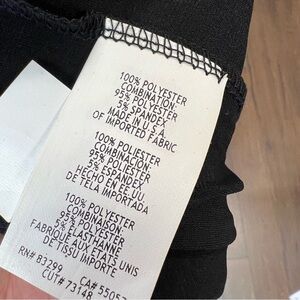 100% POLYESTER
COMBINATION:
95% POLYESTER
5% SPANDEX
MADE IN U.S.A.
OF IMPORTED FABRIC
100% POLIESTER
COMBINACION:
95% POLIESTER
5% ESPANDEX
HECHO EN EE.UU.
DE TELA IMPORTADA
100% POLYESTER
COMBINAISON:
95% POLYESTER
5% ELASTHANNE
FABRIQUE AUX ETATS UNIS
DE TISSU IMPORTE
RN# 83299 CA#
CUT# 73148